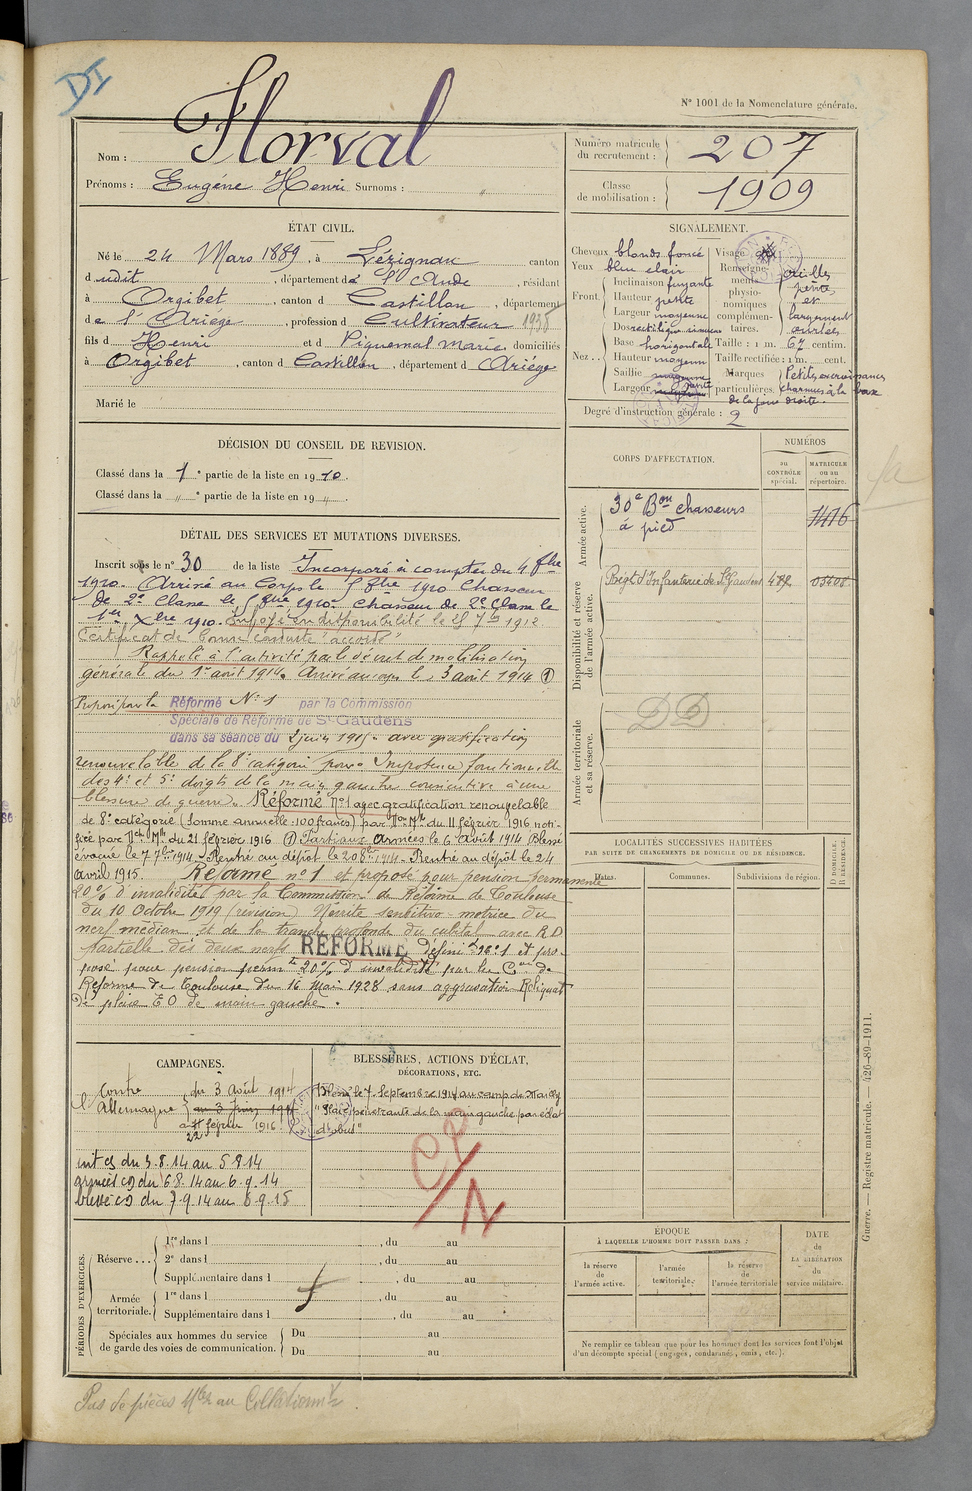 DI
N° 1001 de la Nomenclature générale.
Nom : Florval
Prénoms : Eugéne Henri Surnoms : "
Numéro matricule du recrutement : 207
Classe de mobilisation : 1909
ÉTAT CIVIL.
Né le 24 Mars 1889, à Lézignan canton
d udit, département de l'Aude, résidant
à Orgibet, canton d Castillon, département
de l'Ariège, profession d Cultivateur 1938
fils d Henri et d Piquemal Marie domiciliés
à Orgibet, canton d Castillon, département d Ariége
Marié le
SIGNALEMENT.
Cheveux blonds foncé
Yeux bleu clair
Front. Inclinaison fuyante
Hauteur petite
Largeur moyenne
Nez.. Dos rectiligne sinueux
Base horizontale
Hauteur moyenn
Saillie
Largeur
Visage
Renseignements physionomiques complémentaires. oreilles petites et largement ourlées
Taille : 1 m. 67 centim.
Taille rectifiée : 1 m. cent.
Marques particulières. Petites excroissances charnues à la base de la joue droite.
Degré d'instruction générale : 2
DÉCISION DU CONSEIL DE REVISION.
Classé dans la 1e partie de la liste en 1910.
Classé dans la " e partie de la liste en 19 " .
CORPS D'AFFECTATION.
NUMÉROS
au CONTRÔLE spécial.
MATRICULE ou au répertoire.
Armée active.
30e Bon chasseurs à pied 1476
Disponibilité et réserve de l'armée active.
Régt d'Infanterie de St Gaudens 482
Armée territoriale et sa réserve.
DD
DÉTAIL DES SERVICES ET MUTATIONS DIVERSES.
Inscrit sous le n° 30 de la liste Incorporé à compter du 4 8bre
1910. Arrivé au Corps le 5 8bre 1910 Chasseur
de 2e Classe le 5 8bre 1910. Chasseur de 2e Classe le
1er Xbre 1910. Envoyé en disponibilité le 25 7bre 1912.
Certificat de bonne conduite "accordé"
Rappelé à l'activité par le décret de mobilisation
générale du 1er août 1914. Arrivé au corps le 3 août 1914 (1)
Proposé pour la Réformé N° 1 par la Commission
Spéciale de Réforme de St-Gaudens
dans sa séance du 2 juin 1915 - avec gratification
renouvelable de la 8e catégorie pour "Impotence fonctionnelle
des 4e et 5e doigts de la main gauche consécutive à une
blessure de guerre". Réformé N° 1 avec gratification renouvelable
de 8e catégorie (somme annuelle : 100 francs) par Don Mlle du 11 février 1916 noti-
fiée par Dch Mlle du 21 février 1916 (1) Parti aux Armées le 6 août 1914 Blessé
évacué le 7 7bre 1914 - Rentré au dépôt le 20 8bre 1914 - Rentré au dépôt le 24
avril 1915. Réformé n° 1 et proposé pour pension permanente
20% d'invalidité par la Commission de Réforme de Toulouse
du 10 Octobre 1919 (révision) Névrite sensitivo-motrice du
nerf médian et de la branche profonde du cubital avec R D
partielle des deux nerfs RÉFORMÉ Définitif n° 1 et pro-
posé pour pension permte 20% d'invalidité par la Con de
Réforme de Toulouse du 16 Mai 1928 sans aggravation Reliquat
de plaie E O de main gauche.
LOCALITÉS SUCCESSIVES HABITÉES
PAR SUITE DE CHANGEMENTS DE DOMICILE OU DE RÉSIDENCE.
Dates.
Communes.
Subdivisions de région.
D DOMICILE.
R RÉSIDENCE.
CAMPAGNES.
Contre l'Allemagne du 3 Août 1914
au 3 Juin 1915
février 1916
22
int cs du 3.8.14 au 5 8 14
armées cd du 6 8.14 au 6.9.14
blessé cd du 7.9.14 au 6.9.15
BLESSURES, ACTIONS D'ÉCLAT,
DÉCORATIONS, ETC.
Blessé le 7 Septembre 1914 au camp de Mailly
"Plaie pénétrante de la main gauche par éclat
d'obus"
CP/N
PÉRIODES D'EXERCICES.
Réserve... 1re dans l , du au
2e dans l , du au
Supplémentaire dans l , du au
Armée territoriale. 1re dans l , du au
Supplémentaire dans l , du au
Spéciales aux hommes du service de garde des voies de communication. Du au
Du au
ÉPOQUE
À LAQUELLE L'HOMME DOIT PASSER DANS :
la réserve de l'armée active.
l'armée territoriale.
la réserve de l'armée territoriale
DATE de LA LIBÉRATION du service militaire.
Ne remplir ce tableau que pour les hommes dont les services font l'objet
d'un décompte spécial (engagés, condamnés, omis, etc.).
Guerre. — Registre matricule. — 426-89-1911.
Pas de pièces